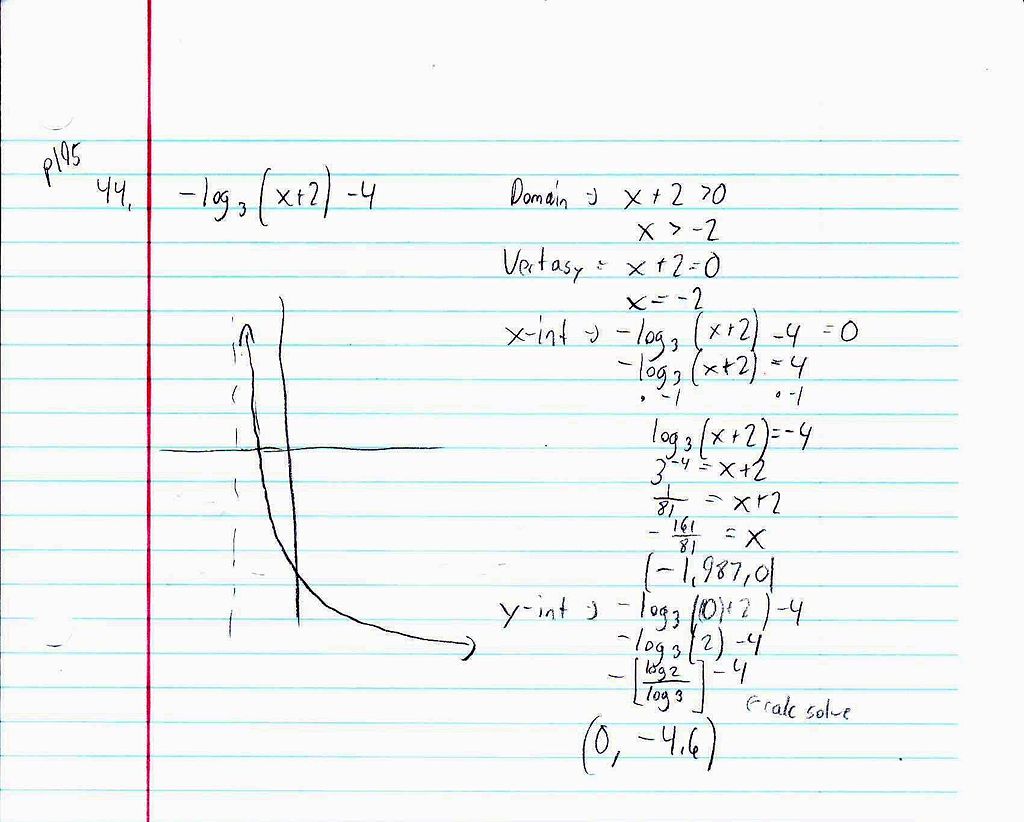 p195
44. -log₃(x+2) -4
Domain ⇒ x + 2 > 0
x > -2
Vert asy = x + 2 = 0
x = -2
x-int ⇒ -log₃(x+2) -4 = 0
-log₃(x+2) = 4
· -1 · -1
log₃(x+2) = -4
3⁻⁴ = x+2
1/81 = x+2
-161/81 = x
(-1.987, 0)
y-int ⇒ -log₃((0)+2) -4
-log₃(2) -4
-[log 2/log 3] -4
← calc solve
(0, -4.6)